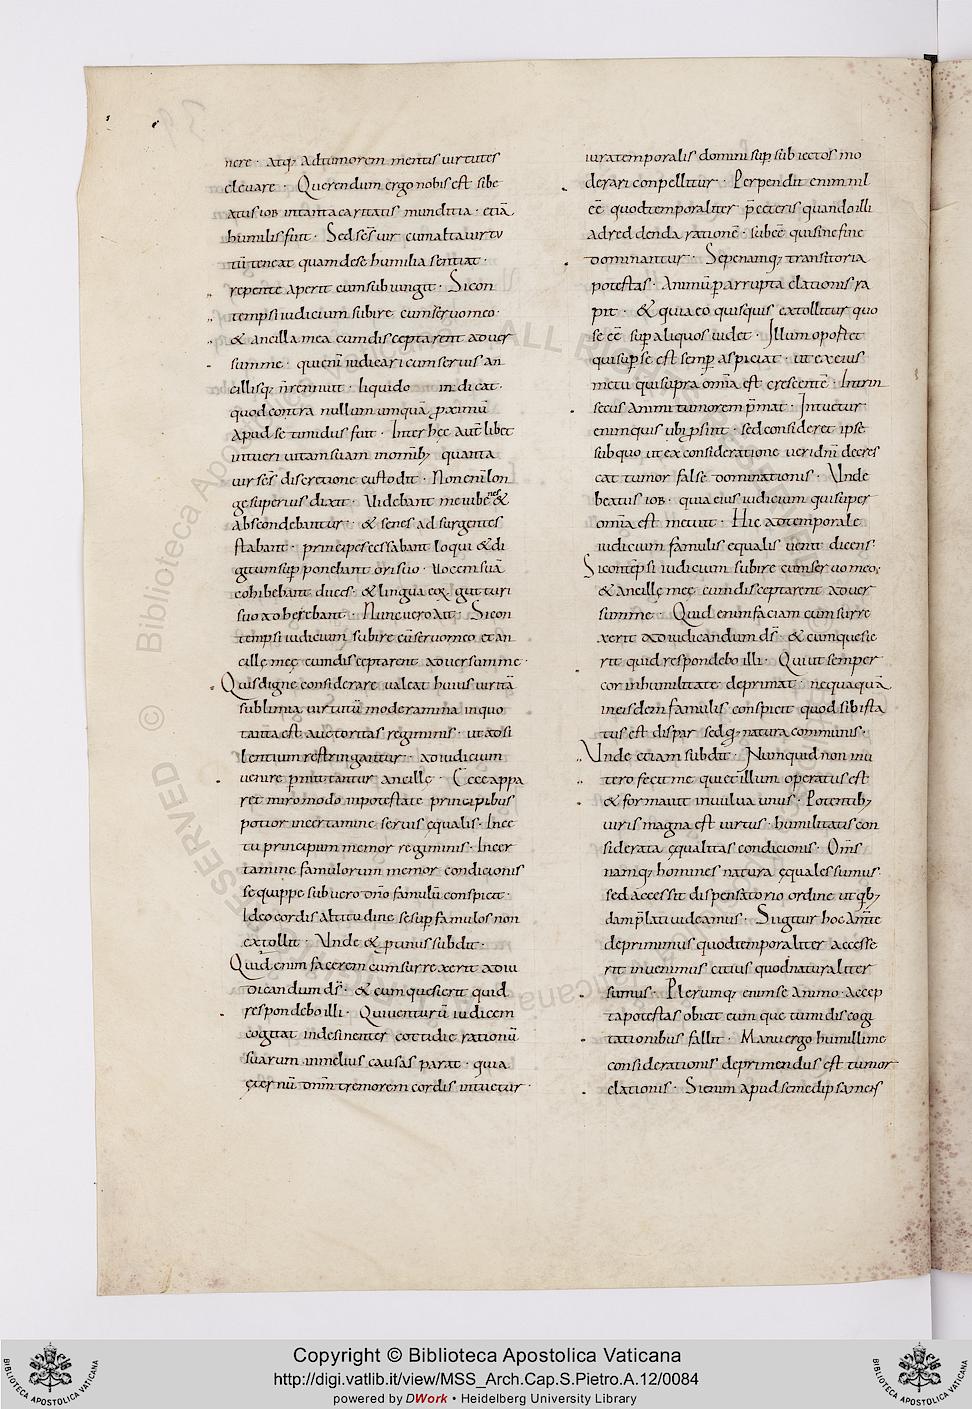 nere · atq; adtumorem mentis uirtutes
eleuare · Querendum ergo nobis est sibe
atus iob intanta caritatis munditia · etiā
humilis fuit · Sed scs̄ uir cum alta uirtu
tū teneat quam de se humilia sentiat ·
repente aperit cum subiungit · Si con
tempsi iudicium subire cum seruo meo ·
& ancilla mea cum disceptarent aduer
summe · quienī iudicari cum seruis an
cillisq; n̄ rennuit · liquido indicat ·
quod contra nullum umquā p̄ximū
apud se timidus fuit · Inter hęc aut̄ libet
intueri uitam suam in omnib; quanta
uir scs̄ discretione custodit · Non enī lon
ge superius dixit · Videbant me iuuenes &
abscondebantur · & senes adsurgentes
stabant · principes cessabant loqui & di
gitum sup ponebant ori suo · Uocem suā
cohibebant duces · & lingua eoꝝ gutturi
suo adherebant · Nunc uero ait · Si con
tempsi iudicium subire cū seruo meo et an
cillę męę cum disceptarent aduersum me ·
Quis digne considerare ualeat huius uiri tā
sublimia uirtutū moderamina in quo
tanta est auctoritas regiminis · ut ad si
lentium restringantur · ad iudicium
uenire p̄mittantur ancillę · Ecce appa
ret miro modo in potestate principibus
potior in certamine seruis ęqualis · In ec
tu principum memor regiminis · In cer
tamine famulorum memor condicionis
se quippe sub uero dn̄o famulū conspicit ·
Ideo cordis altitudine se sup famulos non
extollit · Unde & prinus subdit ·
Quid enim facerem cum surrexerit ad iu
dicandum ds̄ · & cum quesierit quid
respondebo illi · Qui uenturū iudicem
cogitat indesinenter cottidie rationū
suarum in melius causas parat · quia
ęternū dnm̄ tremorem cordis intuetur ·
iura temporalis domini sup subiectos mo
derari conpellitur · Perpendit enim nil
eē quod temporaliter p̄ ceteris quandoilli
ad reddenda ratione · sub eē qui sine fine
dominantur · Sepe namq; transitoria
potestas · animū p̄ abrupta elationis ra
pit · & quia eo quisquis extollitur quo
se eē sup aliquos uidet · Illum oportet
qui sup se est semp aspiciat · ut ex eius
metu qui supra omīa est crescentē · Intrin
secus animi tumorem p̄mat · Intuetur
enim quis ubi p̄ sint · sed consideret ipse
sub quo ut ex consideratione ueri dnī decres
cat tumor false dominationis · Unde
beatus iob · quia eius iudicium qui super
omīa est metuit · Hic ad temporale
iudicium famulis equalis uenit dicens ·
Si contēpsi iudicium subire cum seruo meo ·
& ancillę męę cum disceptarent aduer
summe · Quid enim faciam cum surre
xerit ad iudicandum ds̄ · & cum quesie
rit quid respondebo illi · Qui ut semper
cor in humilitate deprimat · nequaquā
in eisdem famulis conspicit quod sibi sta
tus est dispar sed q; natura communis ·
Unde etiam subdit · Numquid non in u
tero fecit me qui et illum operatus est
& formauit in uulua unus · Potentib;
uiris magna est uirtus · humilitatis con
siderata ęqualitas condicionis · Om̄s
namq; homines natura ęquales sumus ·
sed accessit dispensatorio ordine ut qb;
dam p̄lati uideamus · Si igitur hoc a mte
deprimimus quod temporaliter accesse
rit inuenimus citius quod naturaliter
sumus · Plerumq; enim se animo accep
ta potestas obicit eum que tumidis cogi
tationibus fallit · Manu ergo humillime
considerationis deprimendus est tumor
elationis · Si enim apud semedipsa mens
Copyright © Biblioteca Apostolica Vaticana
http://digi.vatlib.it/view/MSS_Arch.Cap.S.Pietro.A.12/0084
powered by DWork • Heidelberg University Library